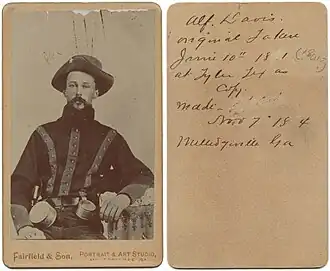 Fairfield & Son, PORTRAIT & ART STUDIO,
Alf. Davis.
original Taken
June 10th
at Tyler Tex as
Copy
made
Nov 7
Milledgeville Ga